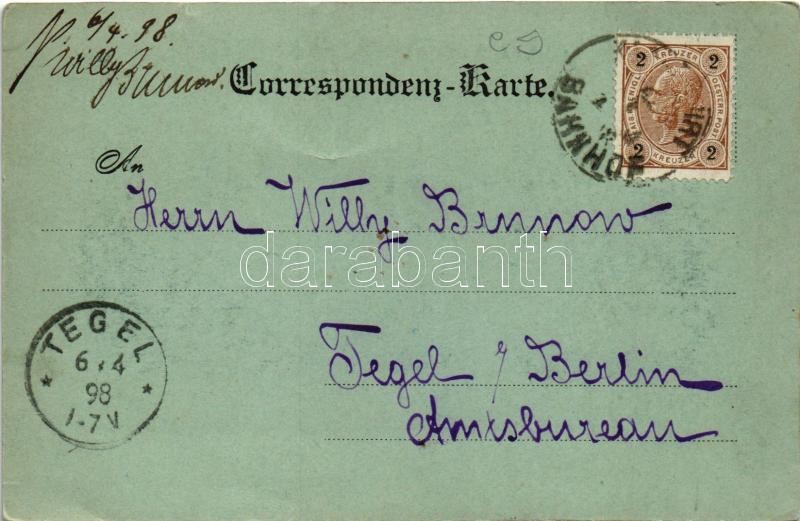 6/4. 98.
Willy
Brunow.
C S
Correspondenz-Karte.
2 KREUZER 2
KAIS. KÖNIGL. OESTERR. POST
2 KREUZER 2
BAHNHOF
An
Herrn Willy Brunow
darabanth
TEGEL
6 4
98
1-7 N
Tegel b/ Berlin
Amtsbureau